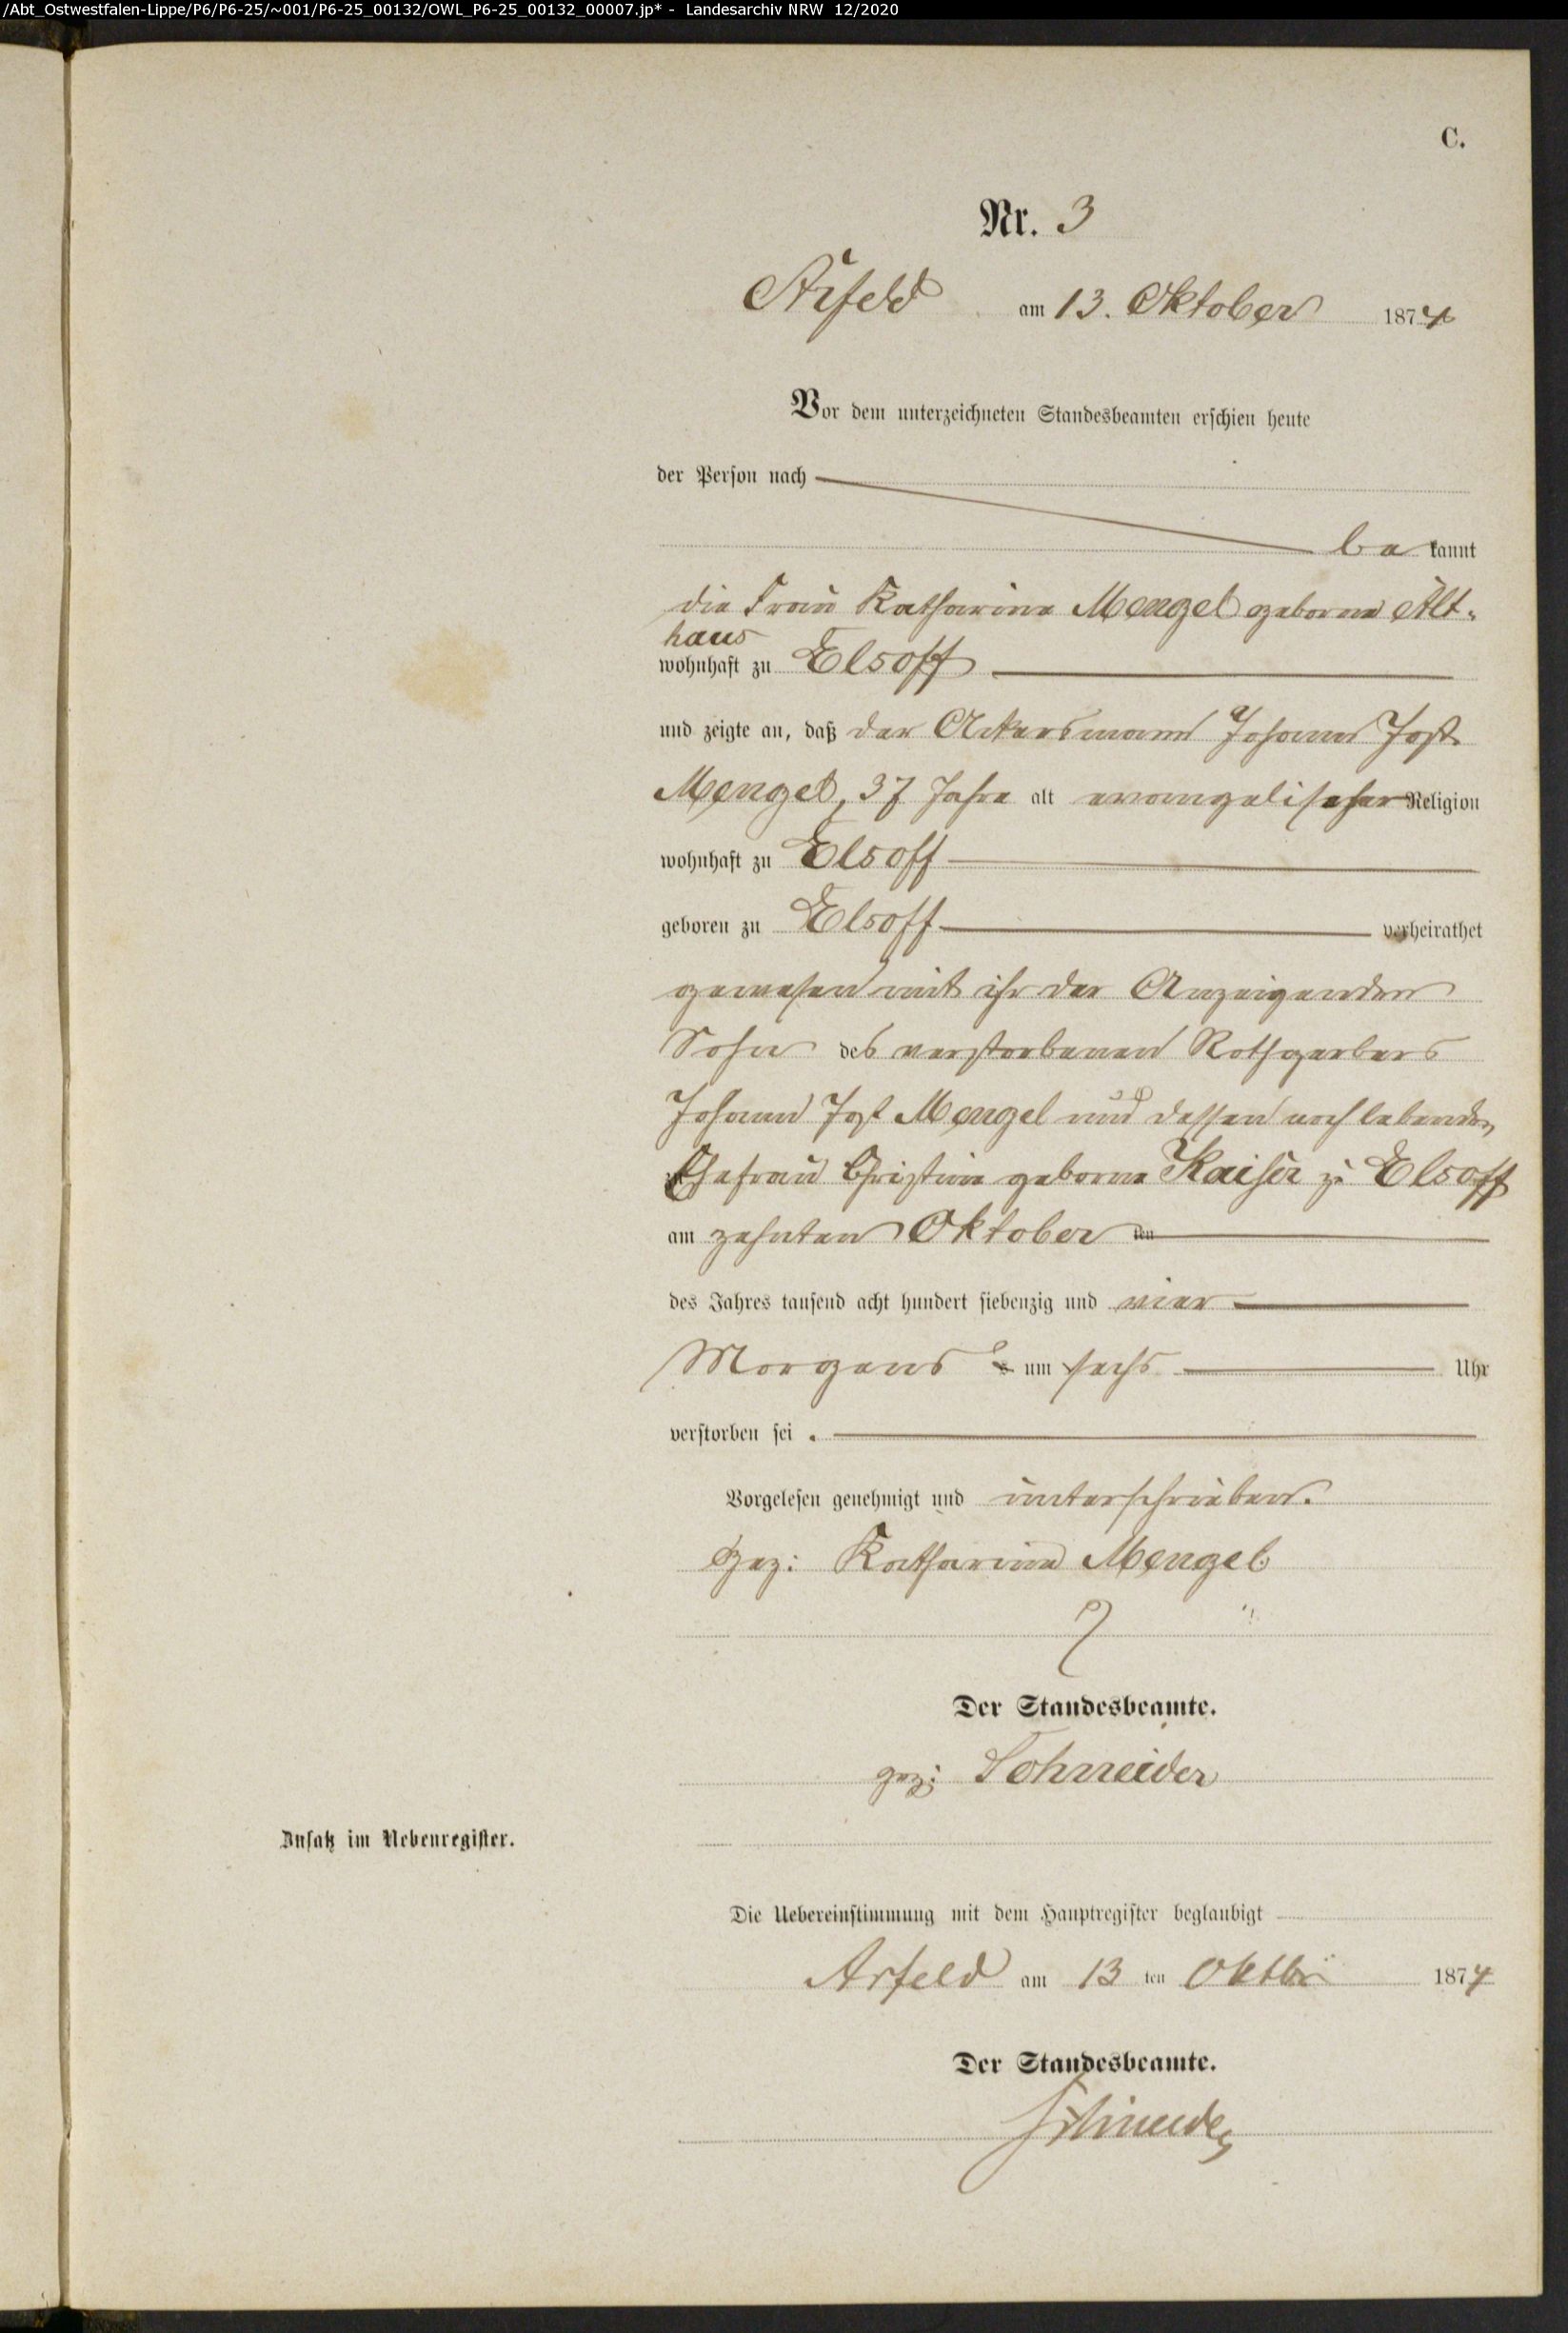 /Abt_Ostwestfalen-Lippe/P6/P6-25/~001/P6-25_00132/OWL_P6-25_00132_00007.jp* - Landesarchiv NRW 12/2020
C.
Nr. 3
Arfeld am 13. Oktober 1874
Vor dem unterzeichneten Standesbeamten erschien heute
der Person nach
be kannt
die Frau Katharina Mengel geborne Alt-
haus
wohnhaft zu Elsoff
und zeigte an, daß der Ackersmann Johann Jost
Mengel, 37 Jahre alt evangelischer Religion
wohnhaft zu Elsoff
geboren zu Elsoff verheirathet
gewesen mit ihr der Anzeigenden
Sohn des verstorbenen Rothgerbers
Johann Jost Mengel und dessen noch lebenden
Ehefrau Christine geborne Kaiser zu Elsoff
am zehnten Oktober ten
des Jahres tausend acht hundert siebenzig und vier
Morgens um sechs Uhr
verstorben sei.
Vorgelesen genehmigt und unterschrieben.
gez: Katharina Mengel
Der Standesbeamte.
gez: Schneider
Zusatz im Nebenregister.
Die Uebereinstimmung mit dem Hauptregister beglaubigt
Arfeld am 13 ten Oktbr 1874
Der Standesbeamte.
Schneider